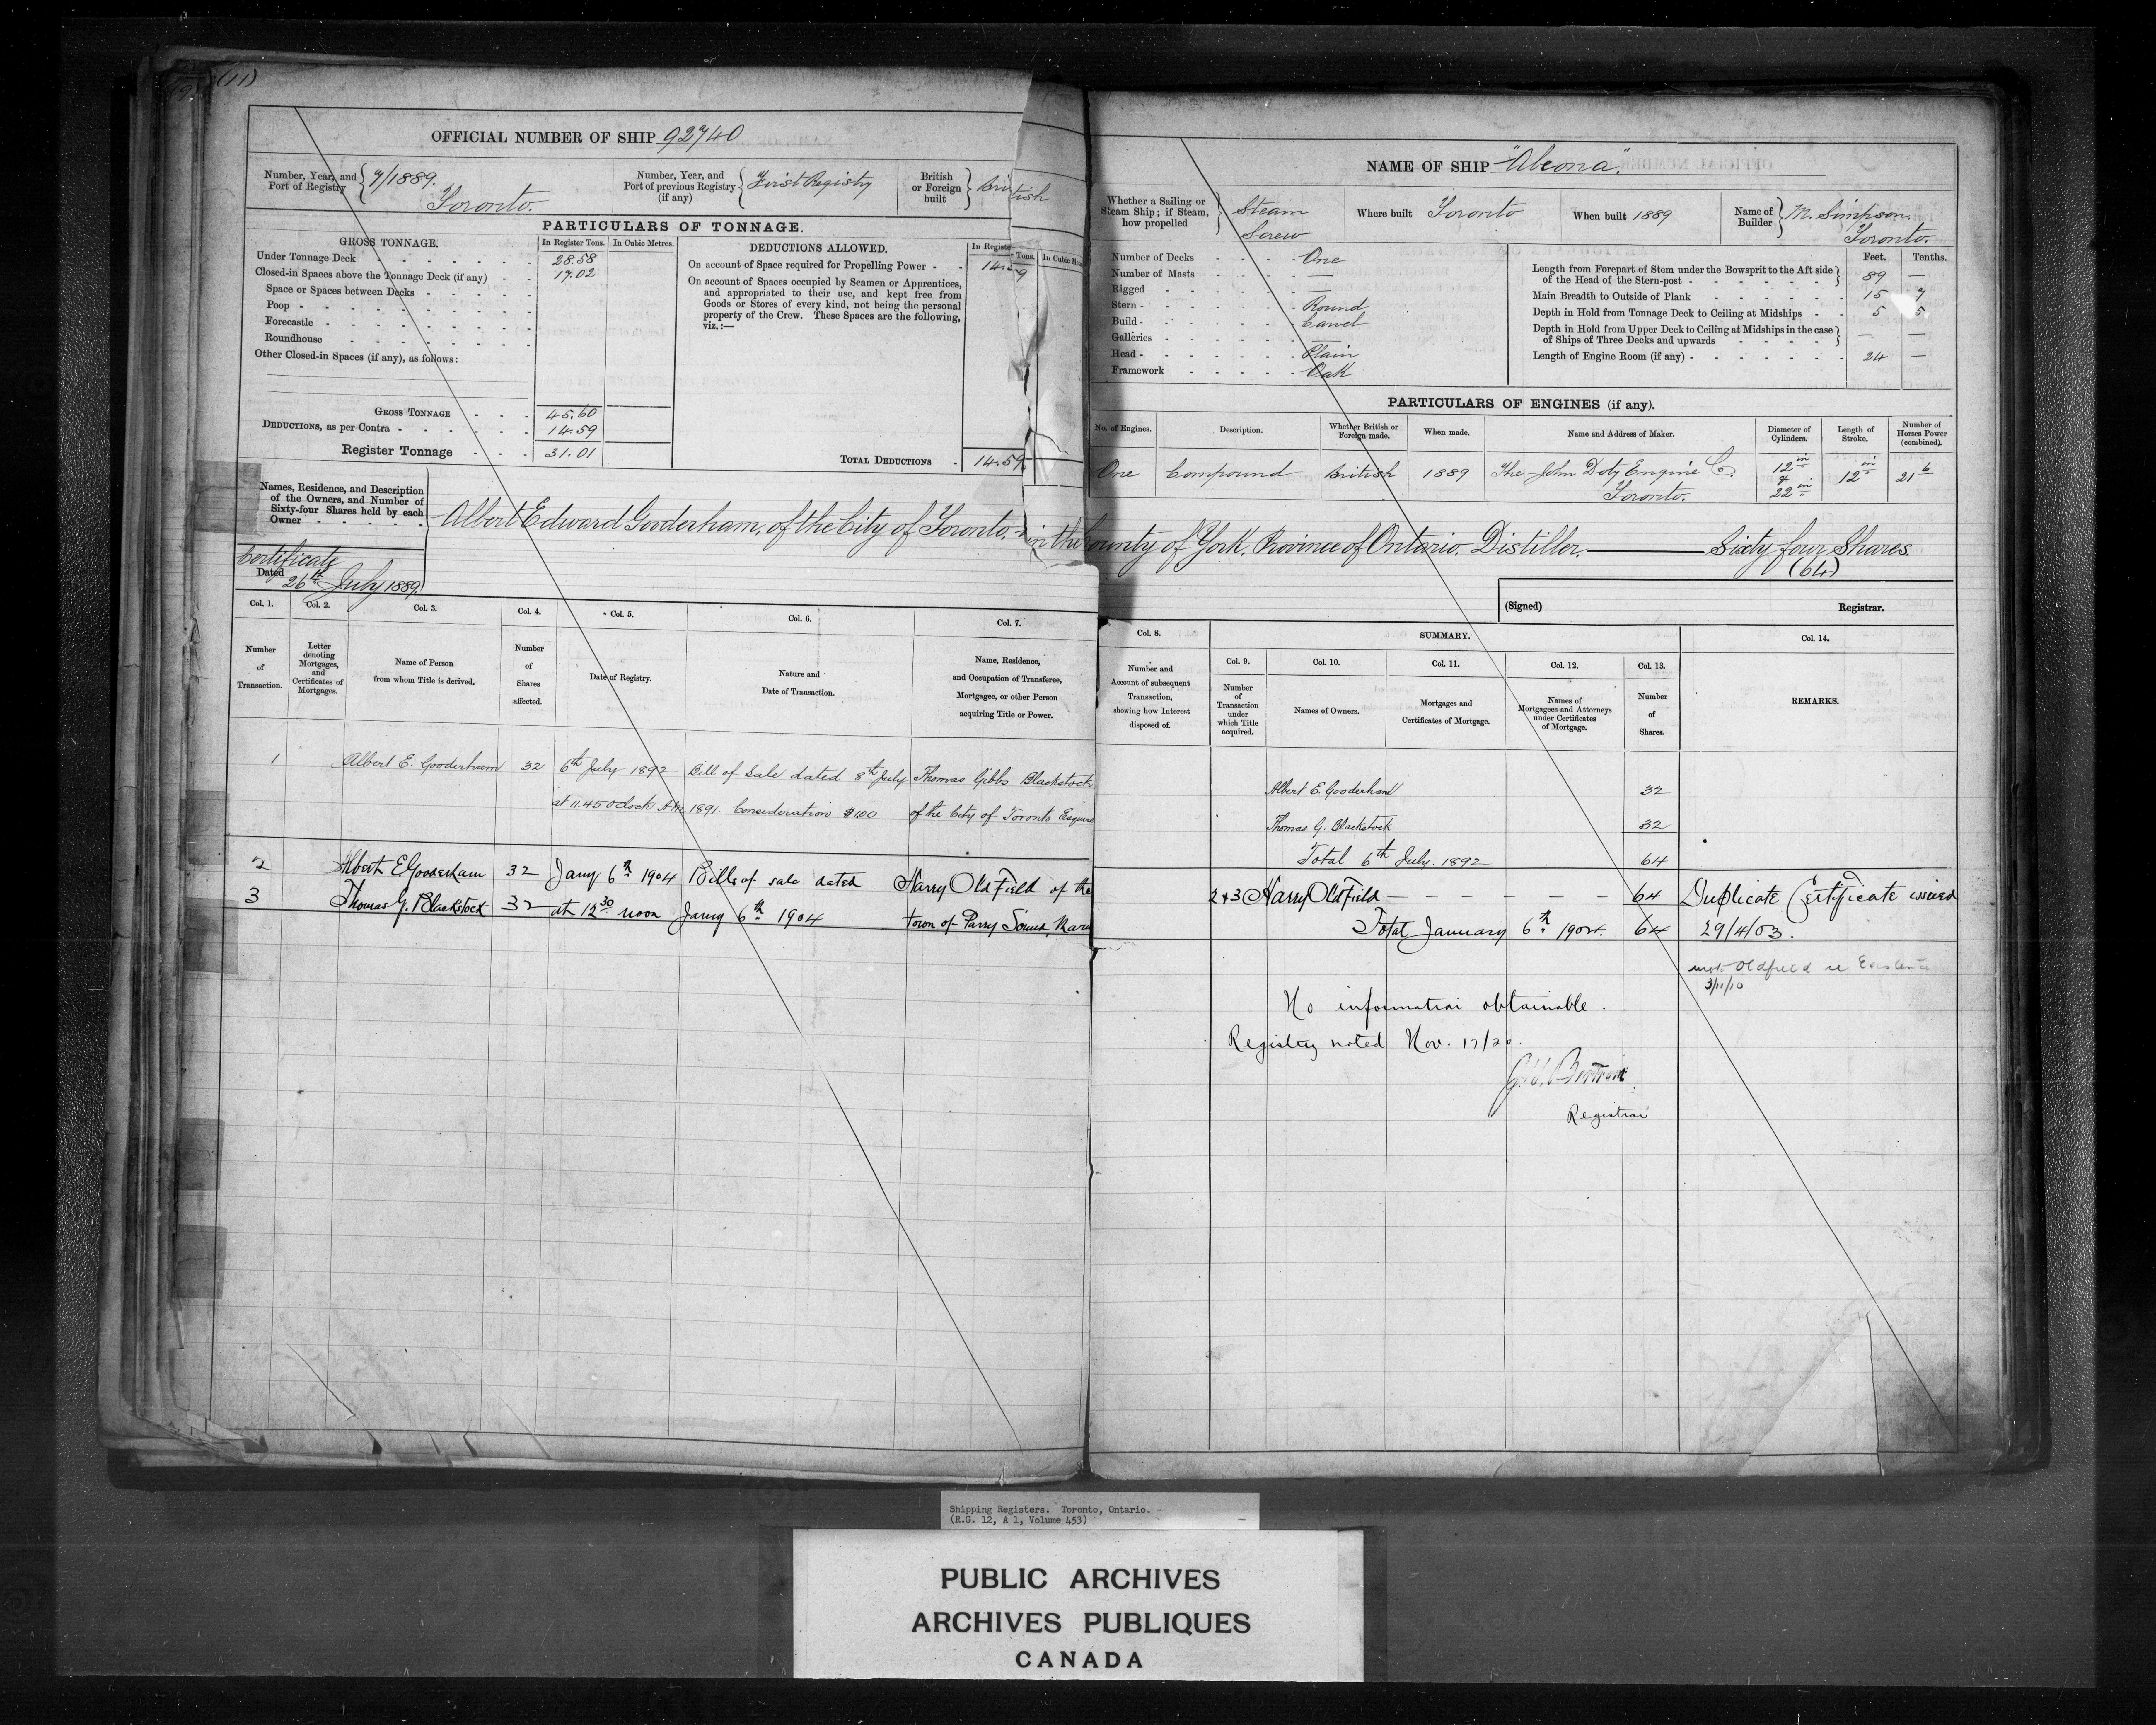 (11)
OFFICIAL NUMBER OF SHIP 92740
Number, Year, and Port of Registry 7/1889. Toronto.
Number, Year, and Port of previous Registry (if any) First Registry
British or Foreign built British
PARTICULARS OF TONNAGE.
GROSS TONNAGE. In Register Tons. In Cubic Metres.
Under Tonnage Deck 28.58
Closed-in Spaces above the Tonnage Deck (if any) 17.02
Space or Spaces between Decks
Poop
Forecastle
Roundhouse
Other Closed-in Spaces (if any), as follows:
GROSS TONNAGE 45.60
DEDUCTIONS, as per Contra 14.59
Register Tonnage 31.01
DEDUCTIONS ALLOWED. In Register Tons. In Cubic
On account of Space required for Propelling Power 14.59
On account of Spaces occupied by Seamen or Apprentices,
and appropriated to their use, and kept free from
Goods or Stores of every kind, not being the personal
property of the Crew. These Spaces are the following,
viz.:—
TOTAL DEDUCTIONS 14.59
NAME OF SHIP "Alcona".
Whether a Sailing or Steam Ship; if Steam, how propelled Steam Screw
Where built Toronto
When built 1889
Name of Builder M. Simpson. Toronto.
Number of Decks One
Number of Masts —
Rigged —
Stern Round
Build Carvel
Galleries —
Head Plain
Framework Oak
Feet. Tenths.
Length from Forepart of Stem under the Bowsprit to the Aft side of the Head of the Stern-post 89 —
Main Breadth to Outside of Plank 15 7
Depth in Hold from Tonnage Deck to Ceiling at Midships 5 5
Depth in Hold from Upper Deck to Ceiling at Midships in the case of Ships of Three Decks and upwards — —
Length of Engine Room (if any) 24 —
PARTICULARS OF ENGINES (if any).
No. of Engines. Description. Whether British or Foreign made. When made. Name and Address of Maker. Diameter of Cylinders. Length of Stroke. Number of Horses Power (combined).
One Compound British 1889 The John Doty Engine Co. Toronto. 12 in & 22 in 12 in 21 6
Names, Residence, and Description
of the Owners, and Number of
Sixty-four Shares held by each
Owner
Albert Edward Gooderham, of the City of Toronto, in the County of York, Province of Ontario. Distiller. — Sixty four Shares.
(64)
Certificate
Dated 26th July 1889.
(Signed) Registrar.
Col. 1. Col. 2. Col. 3. Col. 4. Col. 5. Col. 6. Col. 7.
Number of Transaction.
Letter denoting Mortgages, and Certificates of Mortgages.
Name of Person from whom Title is derived.
Number of Shares affected.
Date of Registry.
Nature and Date of Transaction.
Name, Residence, and Occupation of Transferee, Mortgagee, or other Person acquiring Title or Power.
1 Albert E. Gooderham 32 6th July 1892 Bill of Sale dated 8th July Thomas Gibbs Blackstock
at 11.45 Oclock A.M. 1891. Consideration $1.00 of the City of Toronto Esquire
2 Albert E Gooderham 32 Jany 6th 1904 Bills of sale dated Harry Oldfield of the
3 Thomas G. Blackstock 32 at 12 30 noon Jany 6th 1904 town of Parry Sound,
Col. 8. SUMMARY. Col. 14.
Number and Account of subsequent Transaction, showing how Interest disposed of.
Col. 9. Col. 10. Col. 11. Col. 12. Col. 13.
Number of Transaction under which Title acquired.
Names of Owners.
Mortgages and Certificates of Mortgage.
Names of Mortgagees and Attorneys under Certificates of Mortgage.
Number of Shares.
REMARKS.
Albert E. Gooderham 32
Thomas G. Blackstock 32
Total 6th July. 1892 64
2+3 Harry Oldfield — — — — — 64 Duplicate Certificate issued
Total January 6th 1904. 64 29/4/03.
Oldfield re
3/11/10
No information obtainable.
Registry noted Nov. 17/20.
Registrar
Shipping Registers. Toronto, Ontario.
(R.G. 12, A 1, Volume 453)
PUBLIC ARCHIVES
ARCHIVES PUBLIQUES
CANADA